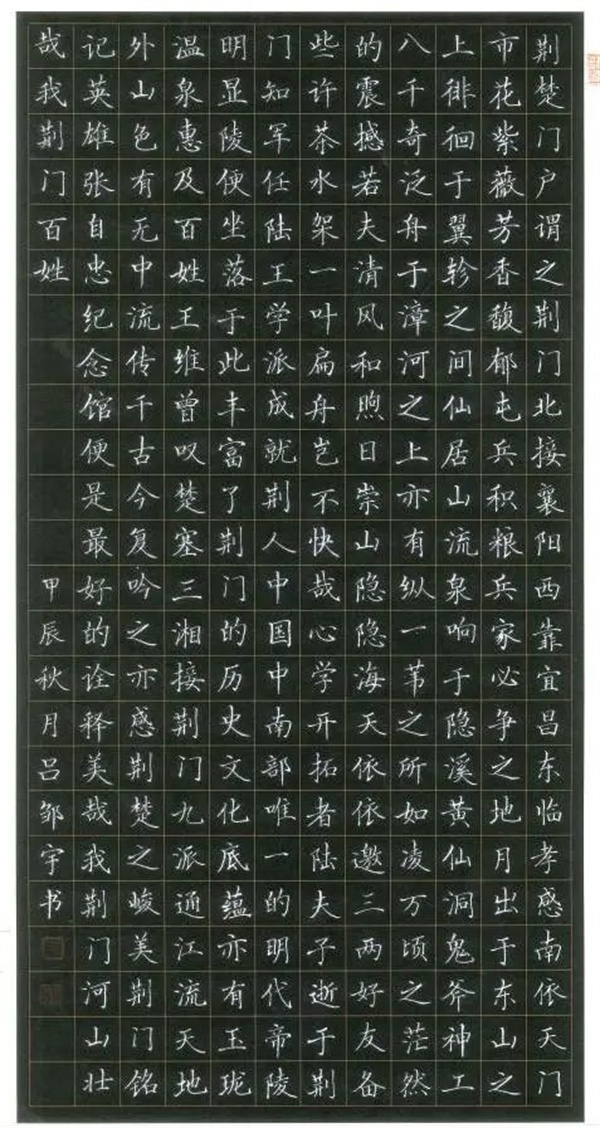 荆楚门户谓之荆门北接襄阳西靠宜昌东临孝感南依天门
市花紫薇芳香馥郁屯兵积粮兵家必争之地月出于东山之
上徘徊于翼轸之间仙居山流泉响于隐溪黄仙洞鬼斧神工
八千奇泛舟于漳河之上亦有纵一苇之所如凌万顷之茫然
的震撼若夫清风和煦日崇山隐隐海天依依邀三两好友备
些许茶水架一叶扁舟岂不快哉心学开拓者陆夫子逝于荆
门知军任陆王学派成就荆人中国中南部唯一的明代帝陵
明显陵便坐落于此丰富了荆门的历史文化底蕴亦有玉珑
温泉惠及百姓王维曾叹楚塞三湘接荆门九派通江流天地
外山色有无中流传千古今复吟之亦感荆楚之峻美荆门铭
记英雄张自忠纪念馆便是最好的诠释美哉我荆门河山壮
哉我荆门百姓 甲辰秋月吕邹宇书